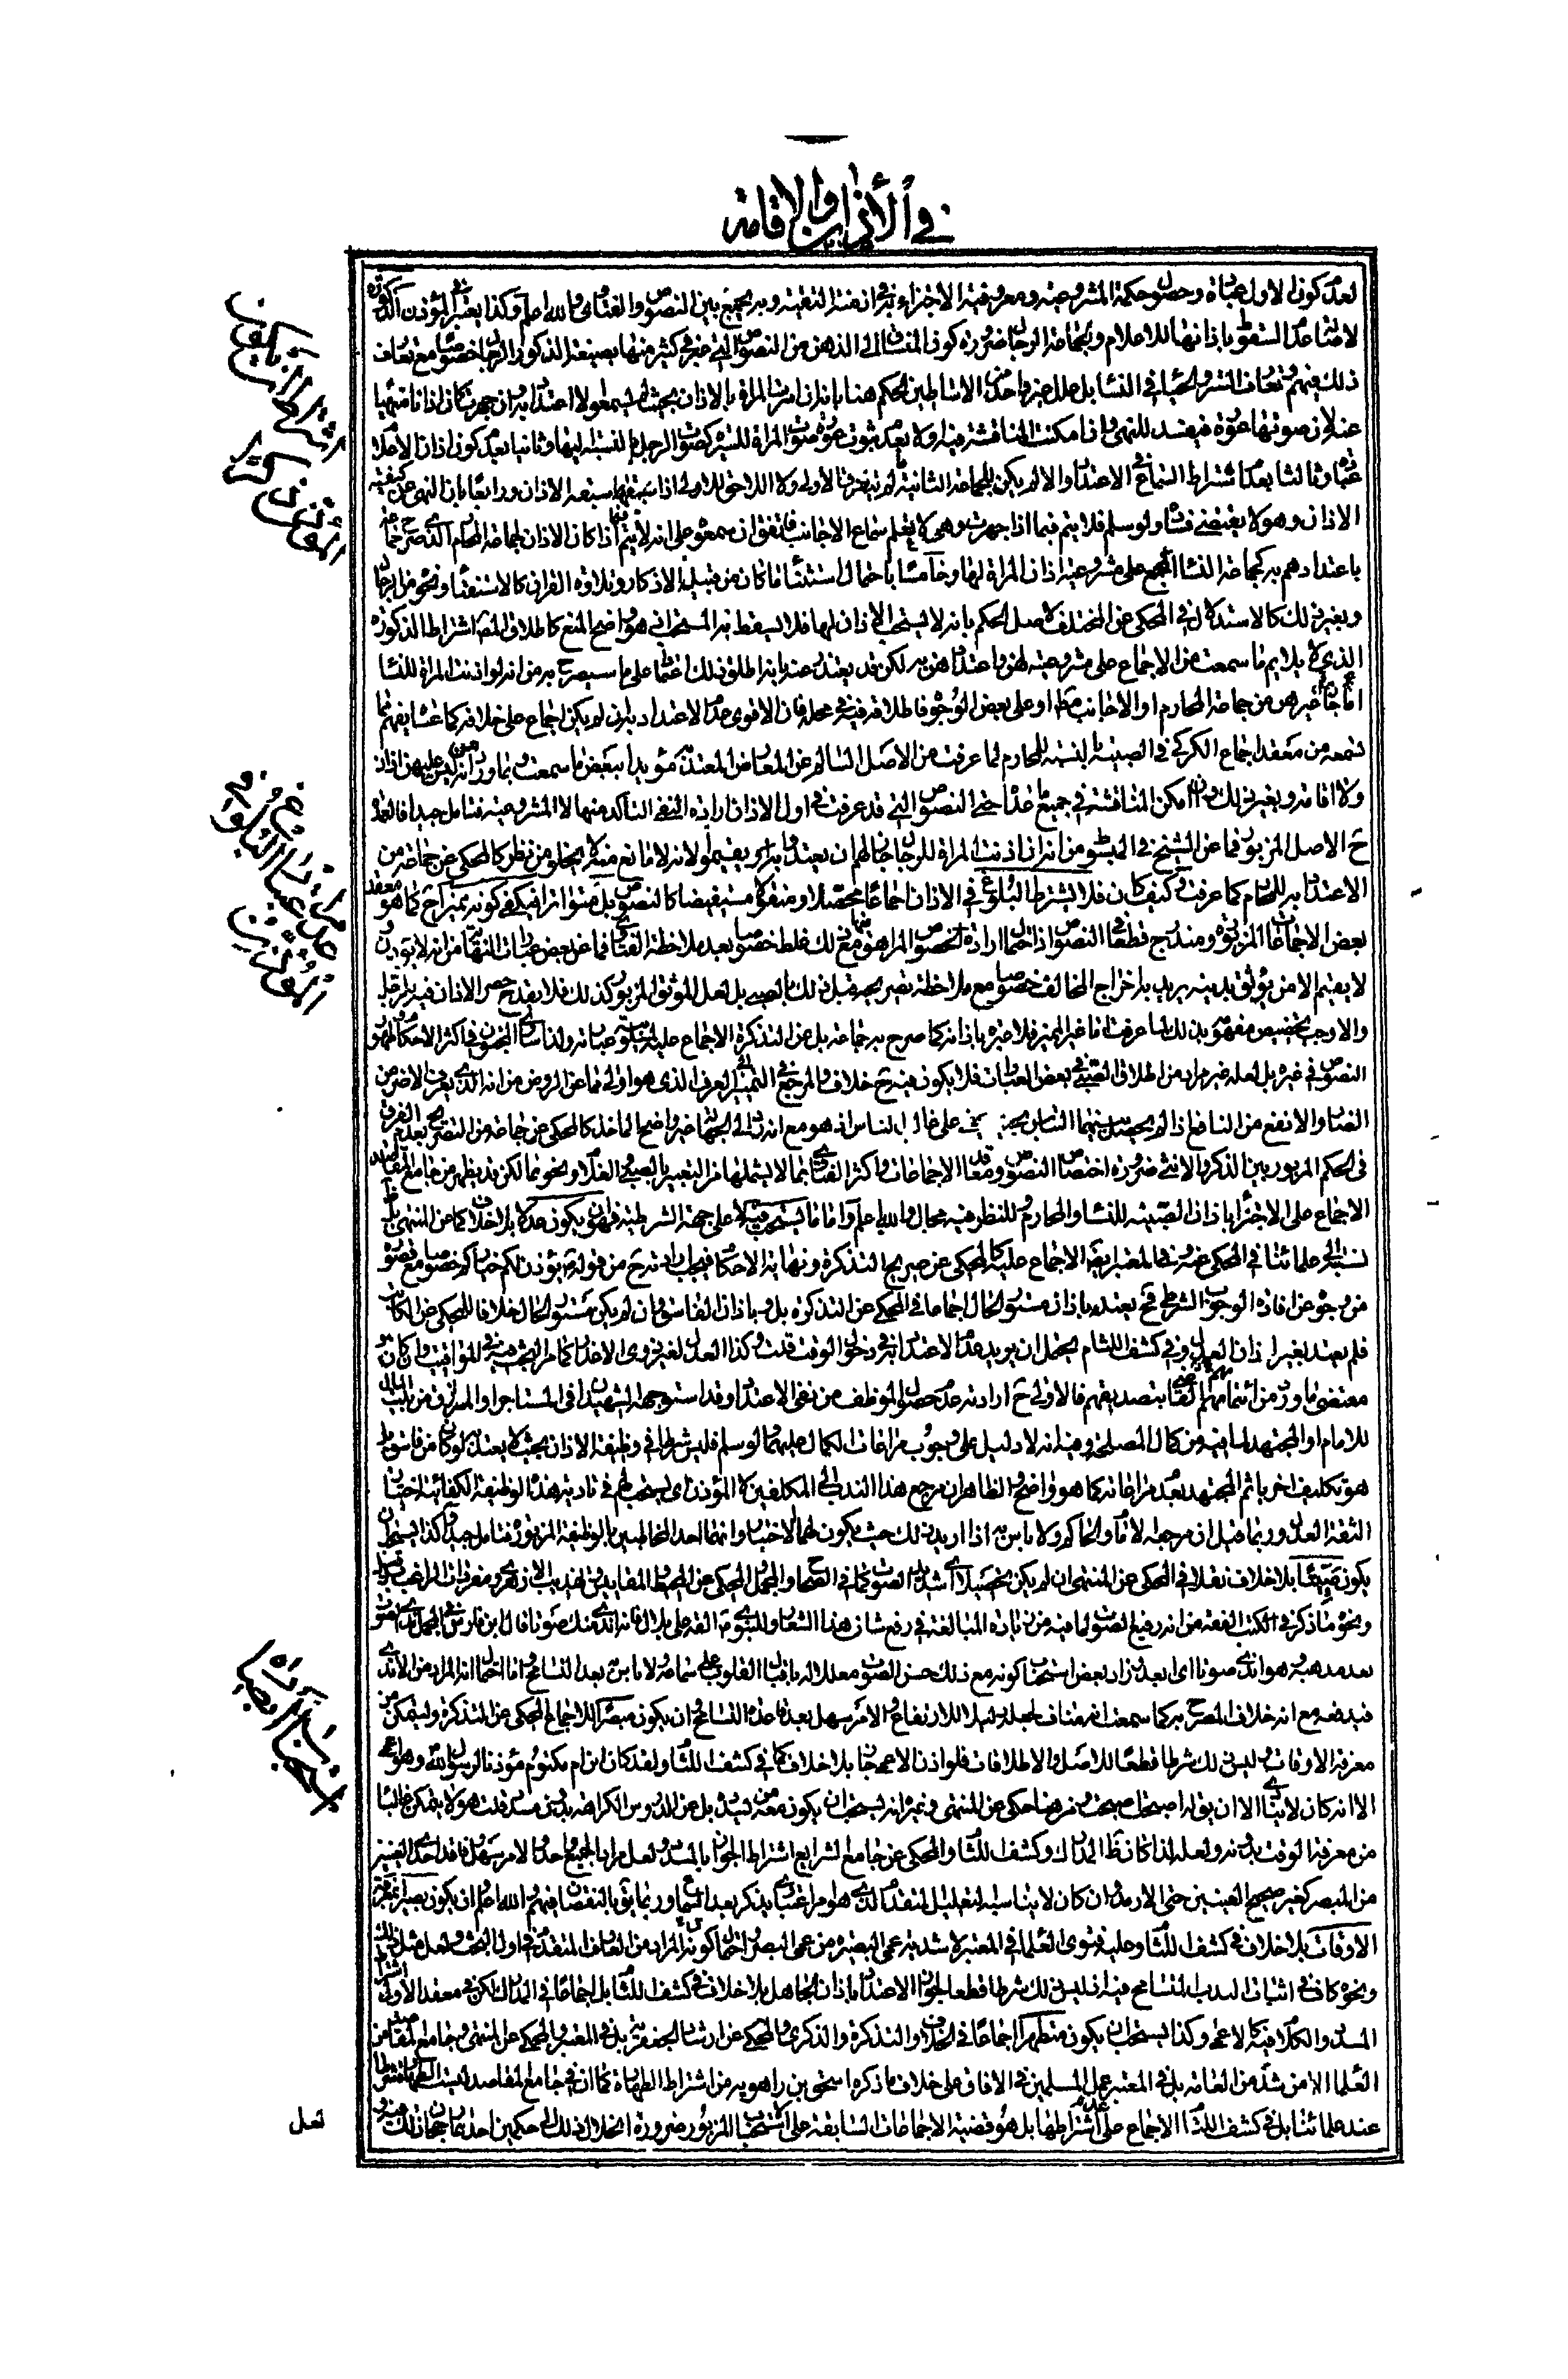 في الأذان والإقامة
لعدم كون الاول عبادة وحصول حكمة المشروعية ومعروفية الاجتزاء به في ازمنة التقية وبه يجمع بين النصوص والفتاوى والله اعلم وكذا يعتبر في المؤذن الذكورة
لاصالة عدم السقوط باذانها للاعلام ولجماعة الرجال ضرورة كون المنساق الى الذهن من النصوص التي خرج كثير منها بصيغة الذكور ارادة الرجال خصوصا مع تعارف
ذلك فيهم وتعارف الستر والحياء في النساء بل علل غير واحد من الاساطين الحكم هنا بانه ان اسرت المراة بالاذان بحيث لم يسمعوا لا اعتداد به وان جهرت كان اذانا منهيا
عنه لان صوتها عورة فيفسد للنهي وان امكنت المناقشة فيه اولا بعدم ثبوت عورة صوت المراة للسيرة كصوت الرجل بالنسبة اليها وثانيا بعدم كون اذان الاعلام
عبادة وثالثا بعدم اشتراط السماع في الاعتداد والا لم يكن للجماعة الثانية ما لم تتفرق الاولى ولا اللاحق للاولى اذا سبقها سبقه الاذان ورابعا بان النهي عن كيفية
الاذان وهو لا يقتضي فساده ولو سلم فلا يتم فيما اذا جهرت وهي لا تعلم سماع الاجانب فاتفق ان سمعوه على انه لا يتم فيما اذا كان الاذان لجماعة المحارم الذي صرح جماعة
باعتدادهم به كجماعة النساء المجمع على مشروعية اذان المراة لها وخامسا باحتمال استثناء ما كان من قبيل الاذكار وتلاوة القران كالاستفتاء ونحوه من الرجال
وبغير ذلك كالاستدلال في المحكي عن المختلف لاصل الحكم بانه لا يستحب الاذان لها فلا يسقط به المستحب اذ هو واضح المنع كاطلاق اشتراط الذكورة
الذي لا يلايم ما سمعت من الاجماع على مشروعيته لهن واعتدادهن به لكن قد يعتذر عنه بانه اطلق ذلك اعتمادا على ما سيصرح به من انه لو اذنت المراة للنساء
جاز اما غيرهن من جماعة المحارم او الاجانب مطلقا او على بعض الوجوه فاطلاقه فيه في محله فان الاقوى عدم الاعتداد به ان لم يكن اجماع على خلافه كما عساه يفهم مما
تسمعه من معقد اجماع الكركي في الصبية بالنسبة للمحارم لما عرفت من الاصل السالم عن المعارض المعتد به مؤيدا ببعض ما سمعت وبما ورد من انه ليس عليهن اذان
ولا اقامة وبغير ذلك وان امكن المناقشة في جميع هذا حتى النصوص التي قد عرفت في اول الاذان ارادة النفي التاكد منها لا المشروعية فتامل جيدا فالعمدة
ح الاصل المزبور فما عن الشيخ في المبسوط من انه ان اذنت المراة للرجال جاز لهم ان يعتدوا به ويقيموا لانه لا مانع منه لا يخلو من نظر كالمحكي عن جماعة من
الاعتداد به للمحارم كما عرفت وكيف كان فلا يشترط البلوغ في الاذان اجماعا محصلا ومنقولا مستفيضا كالنصوص بل متواترا فيكفي كونه مميزا ح كما هو معقد
بعض الاجماعات المزبورة ومندرج قطعا في النصوص اذ احتمال ارادة خصوص المراهق منها مع ذلك غلط خصوصا بعد ملاحظة الفتاوى فما عن بعض عبارات النهاية من انه لا يؤذن
لا يقيم الا من يوثق بدينه يريد به اخراج المخالف خصوصا مع ملاحظة تصريحه قبل ذلك بالصبي بل لعل الموثوق المزبور كذلك فلا يقدح حصر الاذان فيه بالرجل
والا وجب تخصيص مفهومه بذلك لما عرفت اما غير المميز فلا عبرة باذانه كما صرح به جماعة بل عن التذكرة الاجماع عليه لمسلوبية عبارته ولذا ساوى المجنون في اكثر الاحكام وظهور
النصوص في غيره بل لعله غير مراد من اطلاق الصبي في بعض العبارات فلا يكون فيه ح خلاف والمرجع في التمييز العرف الذي هو اولى مما عن الروض من انه الذي يعرف الاضر من
الضار والانفع من النافع اذا لم يحصل بينهما التباس بحيث يخفى على غالب الناس اذ هو مع انه رد الى الجهالة غير واضح الماخذ كالمحكي عن جماعة من التصريح بعدم الفرق
في الحكم المزبور بين الذكر والانثى ضرورة اختصاص النصوص ومعاقد الاجماعات واكثر الفتاوى بما لا يشملها من التعبير بالصبي والغلام ونحوهما لكن قد يظهر من جامع المقاصد
الاجماع على الاجتزاء باذان الصبية للنساء والمحارم وللنظر فيه مجال والله اعلم واما ما يستحب فيه لا على جهة الشرطية فهو ان يكون عدلا بلا خلاف كما عن المنتهى بل
نسب الى علمائنا في المحكي عنه وفي المعتبر بل الاجماع عليه كالمحكي عن صريح التذكرة ونهاية الاحكام فيجب ارادته ح من قوله يؤذن لكم خياركم خصوصا مع قصوره
من وجوه عن افادة الوجوب الشرطي فح يعتد باذان مستور الحال اجماعا في المحكي عن التذكرة بل وباذان الفاسق وان لم يكن مستور الحال خلافا للمحكي عن الكاتب
فلم يعتد بغير اذان العدل وفي كشف اللثام يحتمل ان يريد عدم الاعتداد به في دخول الوقت قلت وكذا العدل لغير ذوي الاعذار كما مر البحث فيه في المواقيت وان كان هو
مقتضى ما ورد من ائتمانهم المقتضي بتصديقهم فالاولى ح ارادته عدم حصول الموظف من نفي الاعتداد وقد استوجهه الشهيدان في المستاجر او المرتزق من بيت المال
للامام او المجتهد لما فيه من كمال المصلحة وفيه انه لا دليل على وجوب مراعات الكمال عليهما ولو سلم فليس شرطا في وظيفة الاذان بحيث لا يعتد به لو كان من فاسق بل
هو تكليف اخر ياثم المجتهد بعدم مراعاته كما هو واضح والظاهر ان مرجع هذا الندب الى المكلفين لا المؤذن اي يستحب لهم في تادية هذه الوظيفة الكفائية اختيار
الثقة العدل وربما قيل ان مرجعه الامام والحاكم ولا باس به اذا اريد ذلك حيث يكون لهما الاختيار وانهما احد المخاطبين بالوظيفة المزبورة فتامل جيدا وكذا يستحب ان
يكون صيتا بلا خلاف نقلا في المحكي عن المنتهى ان لم يكن تحصيلا اي شديد الصوت كما في الصحاح والمجمل والمحكي عن المحيط والمقاييس وتهذيب الازهري ومفردات الراغب
ونحوه ما ذكر في الكتب الفقه من انه رفيع الصوت لما فيه من زيادة المبالغة في رفع شان هذا الشعار وللنبوي القه على بلال فانه اندى منك صوتا قال ابن فارس في المجمل
بعد مذهبه وهو اندى صوتا اي ابعد وزاد بعض استحباب كونه مع ذلك حسن الصوت معللا له باقبال القلوب على سماعه ولا باس به بعد التسامح اما احتمال انه المراد من الاندى
فيدفعه مع انه خلاف المصرح به كما سمعت انه مناف لجعله دليلا للارتفاع والامر سهل بعد قاعدة التسامح وان يكون مبصرا للاجماع المحكي عن التذكرة وليتمكن من
معرفة الاوقات وليس ذلك شرطا قطعا للاصل والاطلاقات فلو اذن الاعمى جاز بلا خلاف كما في كشف اللثام ولقد كان ابن ام مكتوم مؤذنا لرسول الله وهو اعمى
الا انه كان لا ينادي الا ان يقال له اصبحت اصبحت ومن هنا حكى عن المنتهى وغيره انه يستحب ان يكون معه من يسدده بل عن الدروس الكراهة بدون مسدد قلت هو لا يتمكن غالبا
من معرفة الوقت بدونه ولعله لذا كان ظاهر المدارك وكشف اللثام والمحكي عن جامع الشرايع اشتراط الجواز بالمسدد ولعل مراد الجميع واحد والامر سهل
من المبصر كغير صحيح العينين حتى الارمد وان كان لا يناسبه التعليل المتقدم الذي هو مراعى اعتباري يذكر بعد السماع وربما يؤيد بالنقصان فيهم والله اعلم وان يكون بصيرا بمعرفة
الاوقات بلا خلاف في كشف اللثام وعليه فتوى العلماء في المعتبر لاشدية عمى البصيرة من عمى البصر واحتمال كونه المراد من العارف المتقدم في اول البحث ولعل مثل ذلك
ونحوه كاف في اثبات الندب المتسامح فيه اذ ليس ذلك شرطا قطعا لجواز الاعتداد باذان الجاهل بلا خلاف في كشف اللثام بل اجماعا في المدارك لكن في معقد الاول اشتراط
المسدد والكلام فيه كالاعمى وكذا يستحب ان يكون متطهرا اجماعا في الخلاف والتذكرة والذكرى والمحكي عن ارشاد الجعفرية بل في المعتبر والمحكي عن المنتهى وجامع المقاصد من
العلماء الا من شذ من العامة بل في المعتبر عمل المسلمين في الافاق على خلاف ما ذكره اسحق بن راهويه من اشتراط الطهارة كما ان في جامع المقاصد ليست الطهارة شرطا
عند علمائنا بل في كشف اللثام الاجماع على عدم اشتراطها بل هو قضية الاجماعات السابقة على استحباب المزبور ضرورة انحلال ذلك الى حكمين احدهما رجحان ذلك
اشتراط ان يكون
المؤذن ذكرا
عدم اعتبار البلوغ في
المؤذن
استحباب
فعل